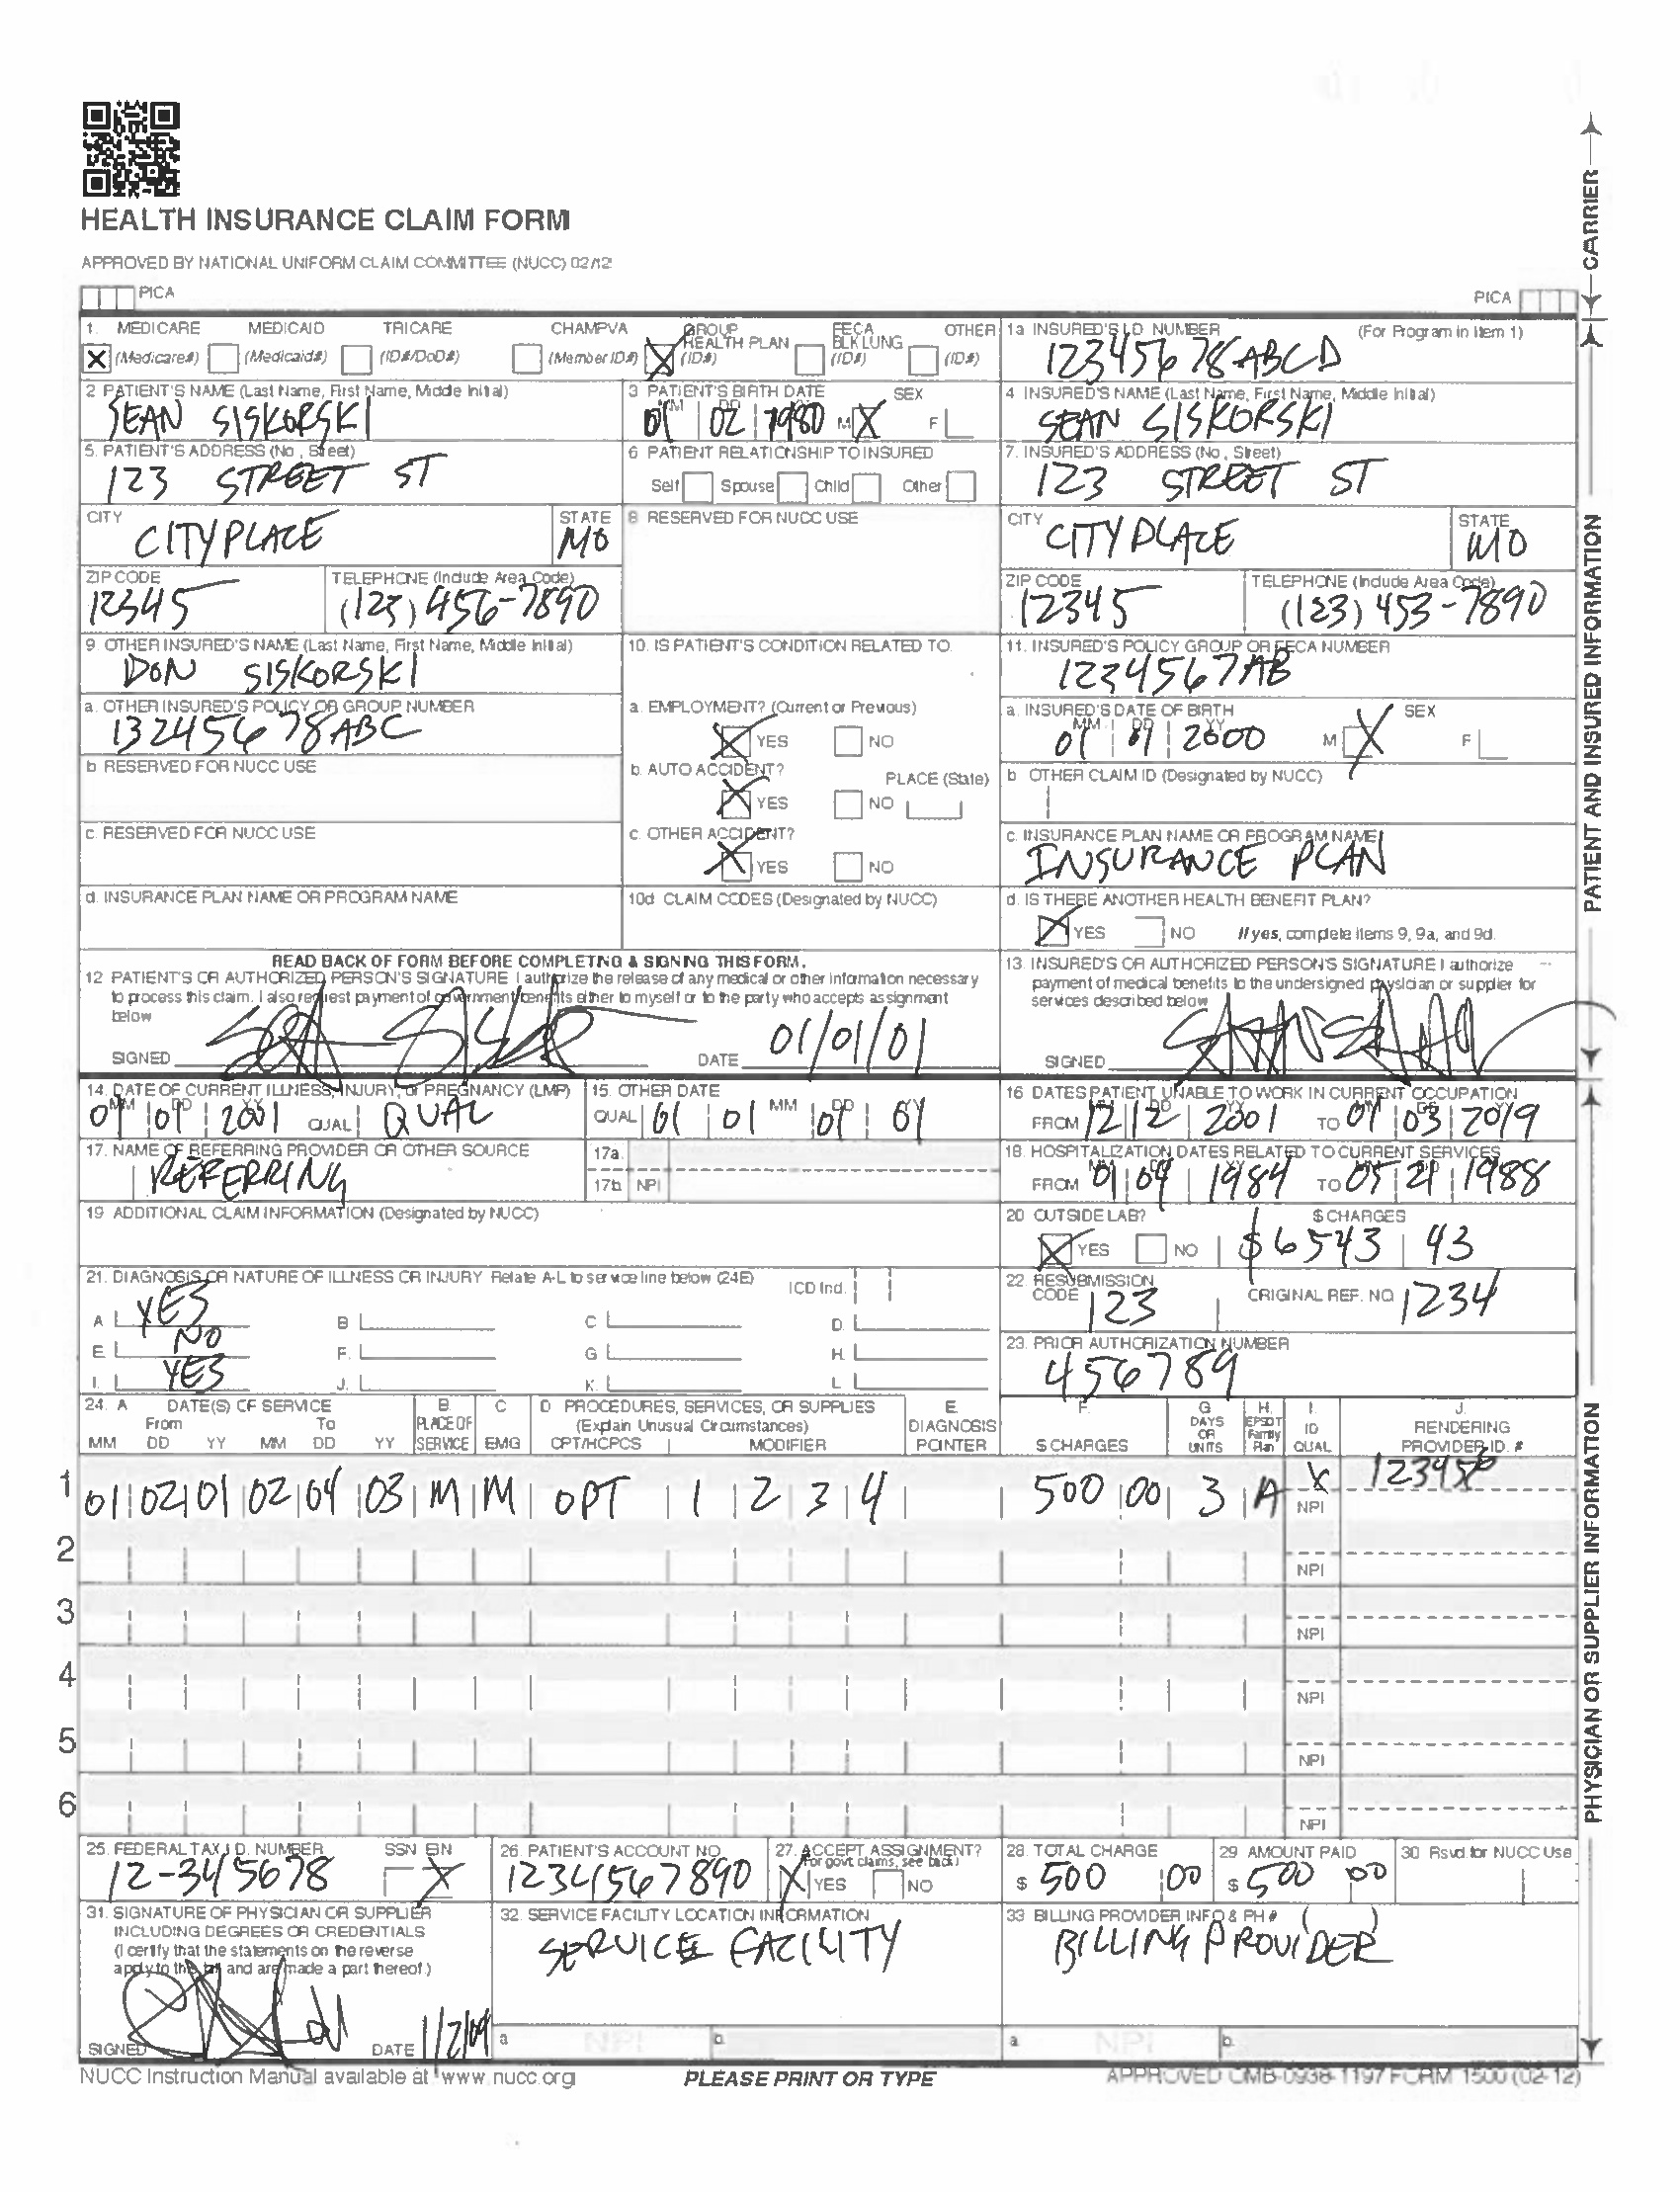 HEALTH INSURANCE CLAIM FORM
APPROVED BY NATIONAL UNIFORM CLAIM COMMITTEE (NUCC) 02/12
PICA
PICA
CARRIER
1. MEDICARE MEDICAID TRICARE CHAMPVA GROUP HEALTH PLAN FECA BLK LUNG OTHER
X (Medicare#) (Medicaid#) (ID#/DoD#) (Member ID#) X (ID#) (ID#) (ID#)
1a INSURED'S I.D. NUMBER (For Program in Item 1)
12345678ABCD
2 PATIENT'S NAME (Last Name, First Name, Middle Initial)
SEAN SISKORSKI
3 PATIENT'S BIRTH DATE SEX
MM DD
01 02 1980 M X F
4 INSURED'S NAME (Last Name, First Name, Middle Initial)
SEAN SISKORSKI
5. PATIENT'S ADDRESS (No., Street)
123 STREET ST
6 PATIENT RELATIONSHIP TO INSURED
Self Spouse Child Other
7. INSURED'S ADDRESS (No., Street)
123 STREET ST
CITY
CITYPLACE
STATE
MO
8 RESERVED FOR NUCC USE
CITY
CITYPLACE
STATE
MO
ZIP CODE
12345
TELEPHONE (Include Area Code)
(123) 456-7890
ZIP CODE
12345
TELEPHONE (Include Area Code)
(123) 453-7890
9. OTHER INSURED'S NAME (Last Name, First Name, Middle Initial)
DON SISKORSKI
10. IS PATIENT'S CONDITION RELATED TO
11. INSURED'S POLICY GROUP OR FECA NUMBER
1234567AB
a. OTHER INSURED'S POLICY OR GROUP NUMBER
13245678ABC
a. EMPLOYMENT? (Current or Previous)
X YES NO
a. INSURED'S DATE OF BIRTH SEX
MM DD YY
01 01 2000 M X F
b RESERVED FOR NUCC USE
b. AUTO ACCIDENT? PLACE (State)
X YES NO
b OTHER CLAIM ID (Designated by NUCC)
c. RESERVED FOR NUCC USE
c. OTHER ACCIDENT?
X YES NO
c. INSURANCE PLAN NAME OR PROGRAM NAME
INSURANCE PLAN
d. INSURANCE PLAN NAME OR PROGRAM NAME
10d CLAIM CODES (Designated by NUCC)
d. IS THERE ANOTHER HEALTH BENEFIT PLAN?
X YES NO If yes, complete items 9, 9a, and 9d.
PATIENT AND INSURED INFORMATION
READ BACK OF FORM BEFORE COMPLETING & SIGNING THIS FORM.
12 PATIENT'S OR AUTHORIZED PERSON'S SIGNATURE I authorize the release of any medical or other information necessary
to process this claim. I also request payment of government benefits either to myself or to the party who accepts assignment
below
SIGNED DATE 01/01/01
13. INSURED'S OR AUTHORIZED PERSON'S SIGNATURE I authorize
payment of medical benefits to the undersigned physician or supplier for
services described below
SIGNED
14. DATE OF CURRENT ILLNESS, INJURY, or PREGNANCY (LMP)
MM DD YY
01 01 2001 QUAL QUAL
15. OTHER DATE
MM DD YY
QUAL 01 01 01 01
16 DATES PATIENT UNABLE TO WORK IN CURRENT OCCUPATION
FROM 12 12 2001 TO 01 03 2019
17. NAME OF REFERRING PROVIDER OR OTHER SOURCE
REFERRING
17a.
17b NPI
18. HOSPITALIZATION DATES RELATED TO CURRENT SERVICES
FROM 01 04 1984 TO 05 21 1988
19 ADDITIONAL CLAIM INFORMATION (Designated by NUCC)
20 OUTSIDE LAB? $ CHARGES
X YES NO $6543 43
21. DIAGNOSIS OR NATURE OF ILLNESS OR INJURY Relate A-L to service line below (24E) ICD Ind.
A. YES B C D.
E. NO F. G H.
I. YES J. K. L.
22 RESUBMISSION
CODE 123 ORIGINAL REF. NO 1234
23. PRIOR AUTHORIZATION NUMBER
456789
24. A DATE(S) OF SERVICE B. C D PROCEDURES, SERVICES, OR SUPPLIES E. F. G H. I. J.
From To PLACE OF (Explain Unusual Circumstances) DIAGNOSIS DAYS OR UNITS EPSDT Family Plan ID RENDERING
MM DD YY MM DD YY SERVICE EMG CPT/HCPCS MODIFIER POINTER $ CHARGES QUAL PROVIDER ID. #
1 01 02 01 02 04 03 M M OPT 1 2 3 4 500 00 3 A X 123456
NPI
2 NPI
3 NPI
4 NPI
5 NPI
6 NPI
25. FEDERAL TAX I.D. NUMBER SSN EIN
12-345678 X
26. PATIENT'S ACCOUNT NO
1234567890
27. ACCEPT ASSIGNMENT?
(For govt. claims, see back)
X YES NO
28. TOTAL CHARGE
$ 500 00
29 AMOUNT PAID
$ 500 00
30 Rsvd for NUCC Use
31. SIGNATURE OF PHYSICIAN OR SUPPLIER
INCLUDING DEGREES OR CREDENTIALS
(I certify that the statements on the reverse
apply to this bill and are made a part thereof.)
SIGNED DATE 1/2/09
32. SERVICE FACILITY LOCATION INFORMATION
SERVICE FACILITY
a NPI b.
33 BILLING PROVIDER INFO & PH # ( )
BILLING PROVIDER
a NPI b.
PHYSICIAN OR SUPPLIER INFORMATION
NUCC Instruction Manual available at www.nucc.org
PLEASE PRINT OR TYPE
APPROVED OMB-0938-1197 FORM 1500 (02-12)